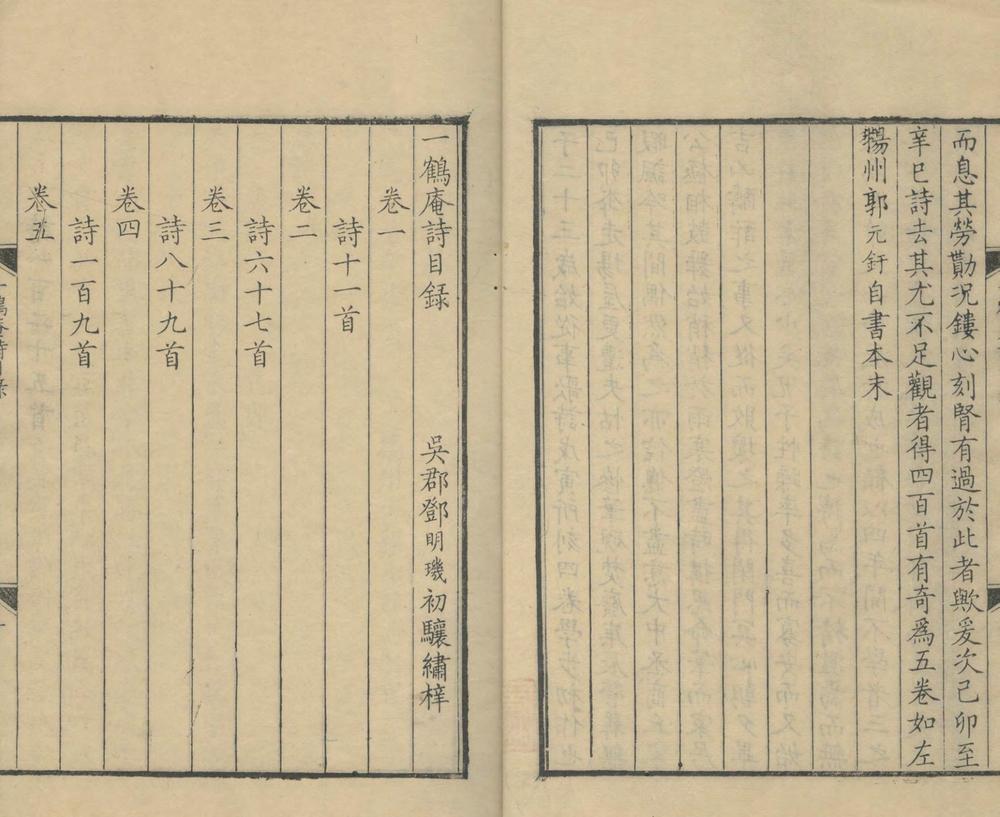 而息其勞勩況鏤心刻腎有過於此者歟爰次己卯至
辛巳詩去其尤不足觀者得四百首有奇爲五卷如左
楊州郭元釪自書本末
一鶴庵詩目録
吳郡鄧明璣初驤繡梓
卷一
詩十一首
卷二
詩六十七首
卷三
詩八十九首
卷四
詩一百九首
卷五